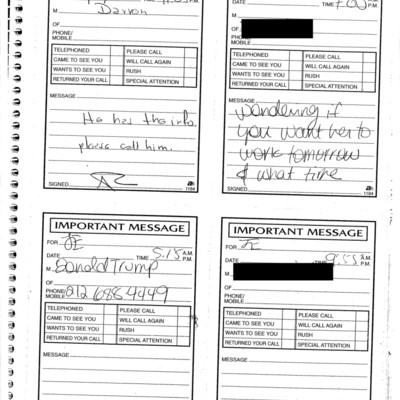 M Darron
OF
PHONE/
MOBILE
TELEPHONED PLEASE CALL
CAME TO SEE YOU WILL CALL AGAIN
WANTS TO SEE YOU RUSH
RETURNED YOUR CALL SPECIAL ATTENTION
MESSAGE
He has the info.
please call him.
SIGNED
1184
DATE TIME 7:00 P.M.
M
OF
PHONE/
MOBILE
TELEPHONED PLEASE CALL
CAME TO SEE YOU WILL CALL AGAIN
WANTS TO SEE YOU RUSH
RETURNED YOUR CALL SPECIAL ATTENTION
MESSAGE
Wondering if
you want her to
work tomorrow
& what time
SIGNED
1184
IMPORTANT MESSAGE
FOR JE
DATE TIME 5:15 A.M. P.M.
M Donald Trump
OF
PHONE/
MOBILE 212 688 4449
TELEPHONED PLEASE CALL
CAME TO SEE YOU WILL CALL AGAIN
WANTS TO SEE YOU RUSH
RETURNED YOUR CALL SPECIAL ATTENTION
MESSAGE
IMPORTANT MESSAGE
FOR JE
DATE TIME 9:55 A.M. P.M.
M
OF
PHONE/
MOBILE
TELEPHONED PLEASE CALL
CAME TO SEE YOU WILL CALL AGAIN
WANTS TO SEE YOU RUSH
RETURNED YOUR CALL SPECIAL ATTENTION
MESSAGE